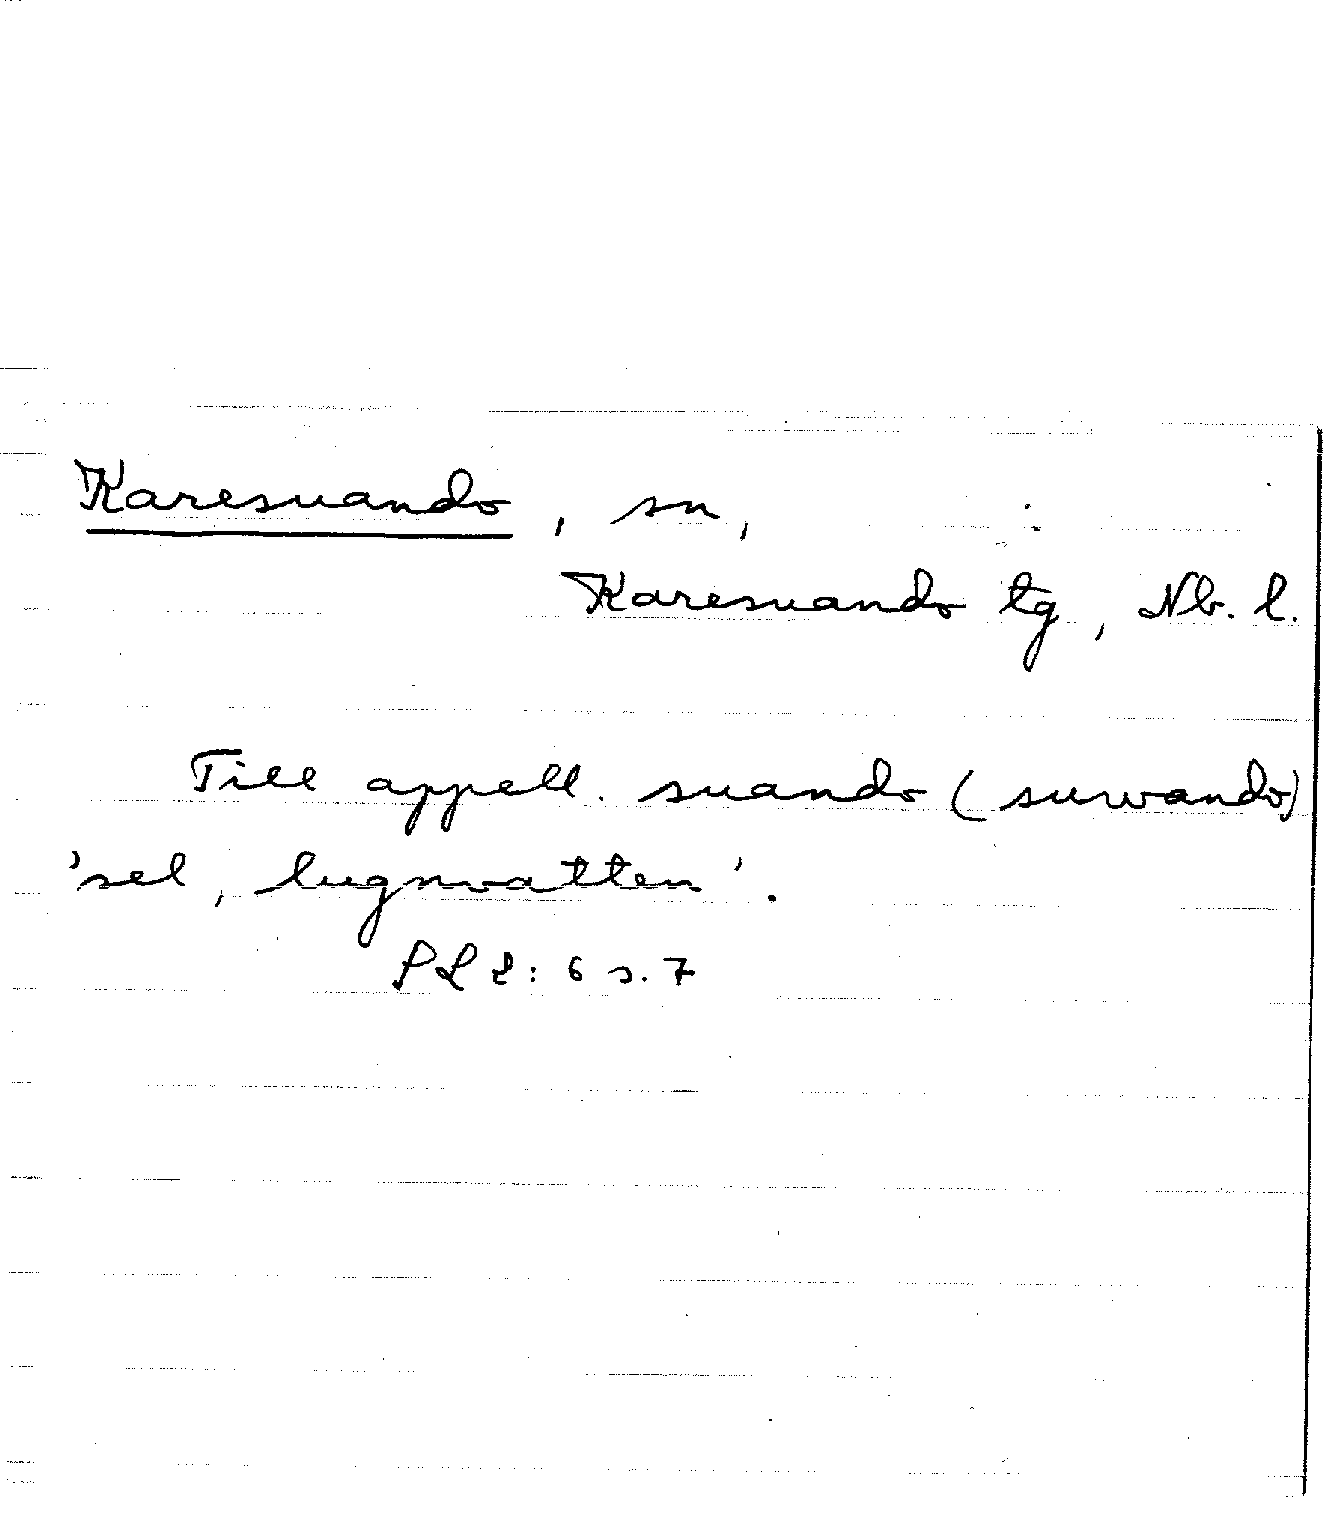 Karesuando, sn,
Karesuando tg, Nb. l.
Till appell. suando (suwando)
'sel, lugnvatten'.
PL 2: 6 s. 7